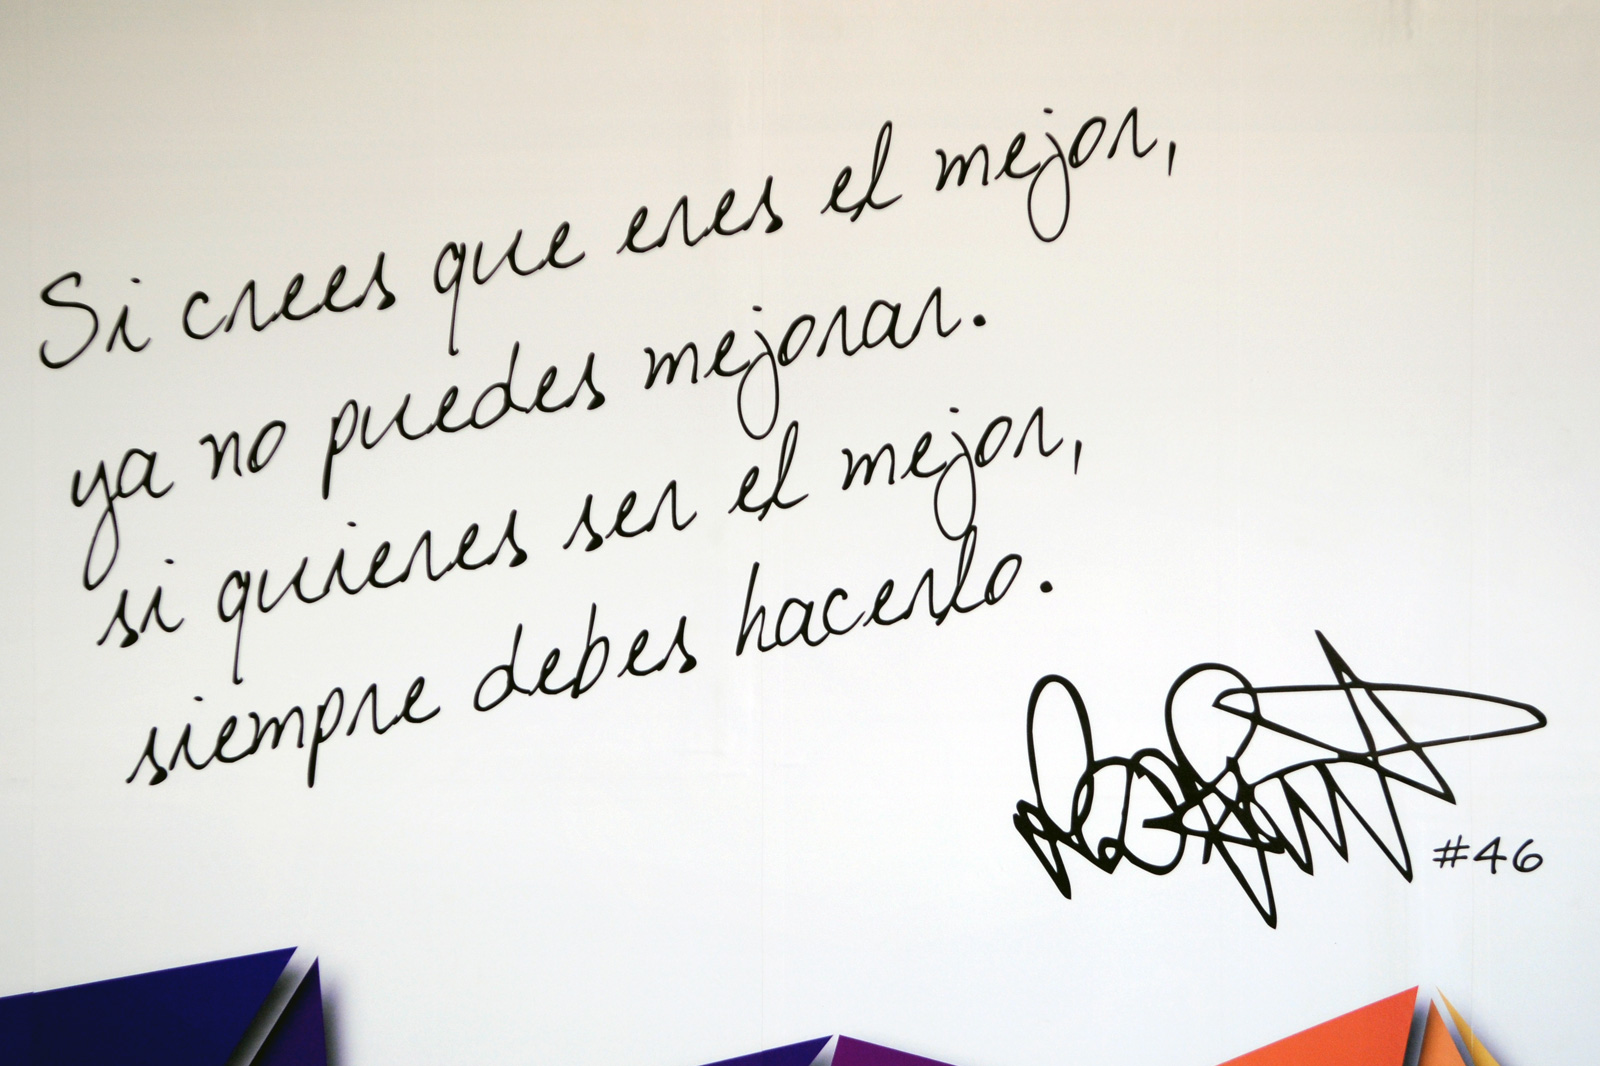 Si crees que eres el mejor,
ya no puedes mejorar.
si quieres ser el mejor,
siempre debes hacerlo.
#46